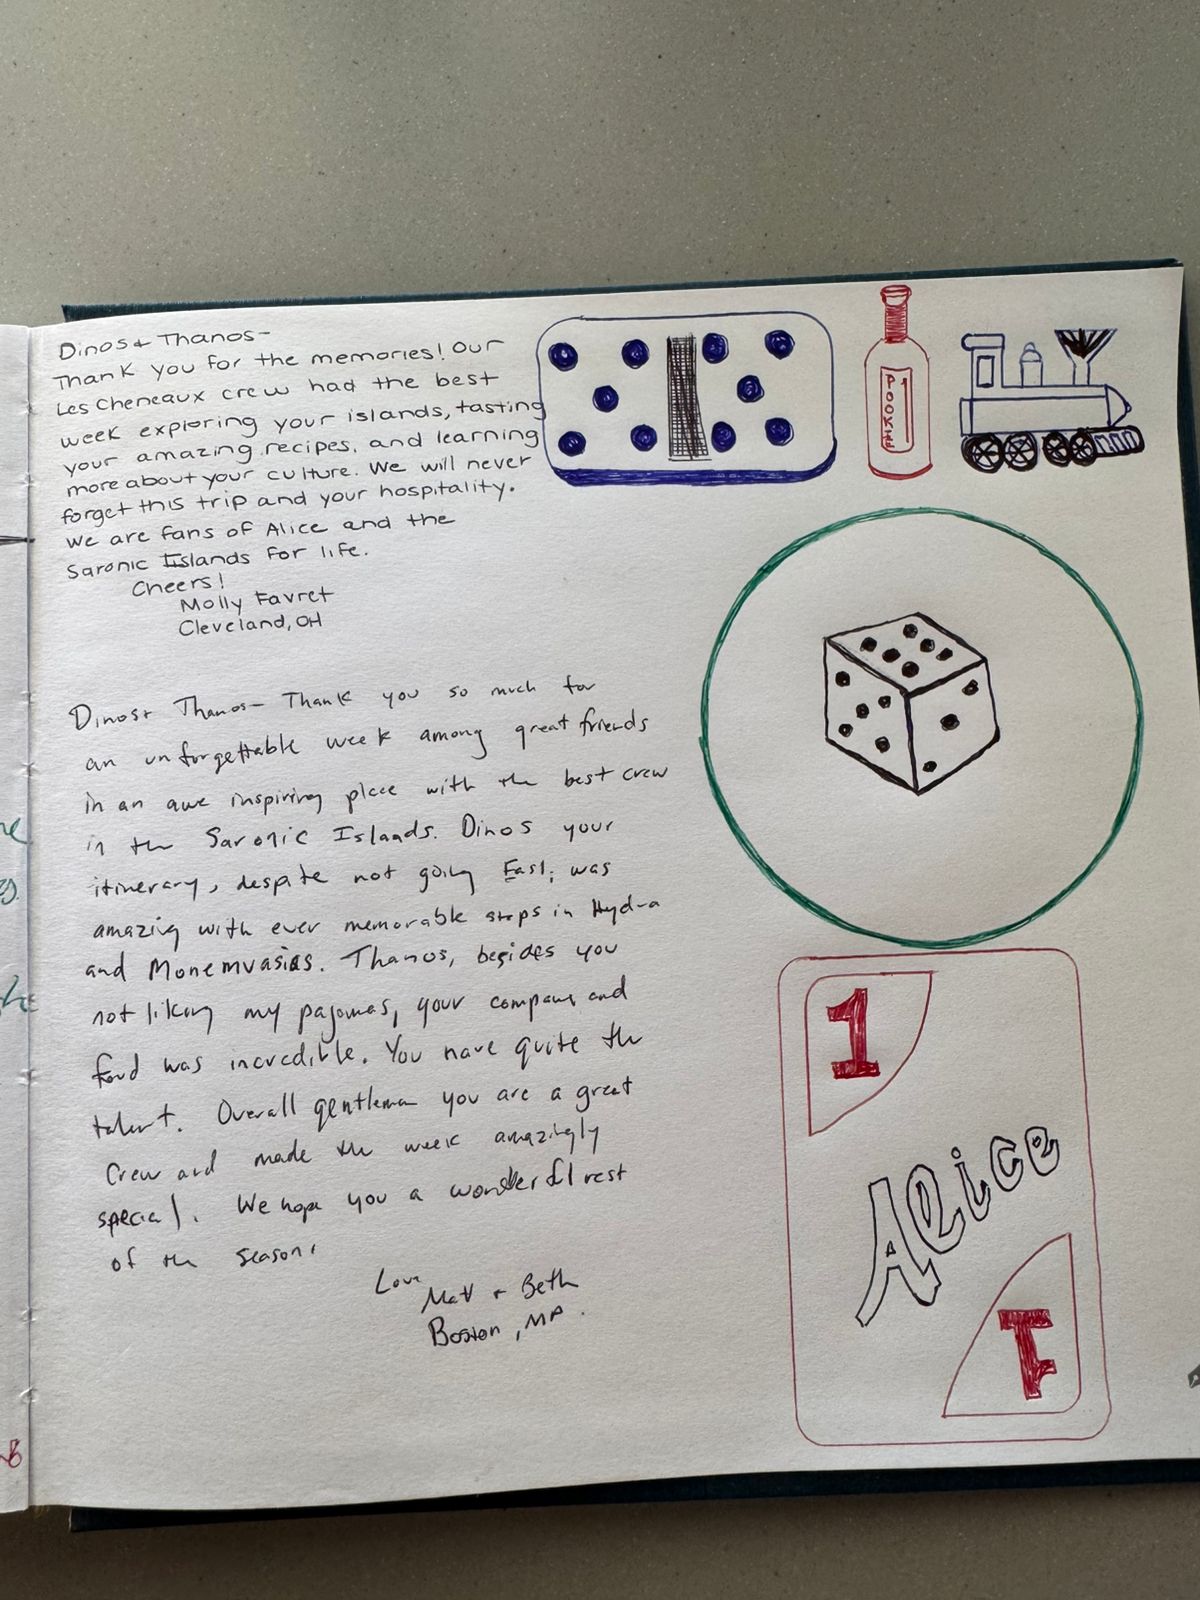 Dinos & Thanos-
Thank you for the memories! Our
Les Cheneaux crew had the best
week exploring your islands, tasting
your amazing recipes, and learning
more about your culture. We will never
forget this trip and your hospitality.
We are fans of Alice and the
Saronic Islands for life.
Cheers!
Molly Favret
Cleveland, OH
Dinos & Thanos- Thank you so much for
an unforgettable week among great friends
in an awe inspiring place with the best crew
in the Saronic Islands. Dinos your
itinerary, despite not going East, was
amazing with ever memorable stops in Hydra
and Monemvasias. Thanos, besides you
not liking my pajamas, your company and
food was incredible. You have quite the
talent. Overall gentleman you are a great
crew and made the week amazingly
special. We hope you a wonderful rest
of the season.
Love
Matt & Beth
Boston, MA.
POOKIE
1
Alice
1